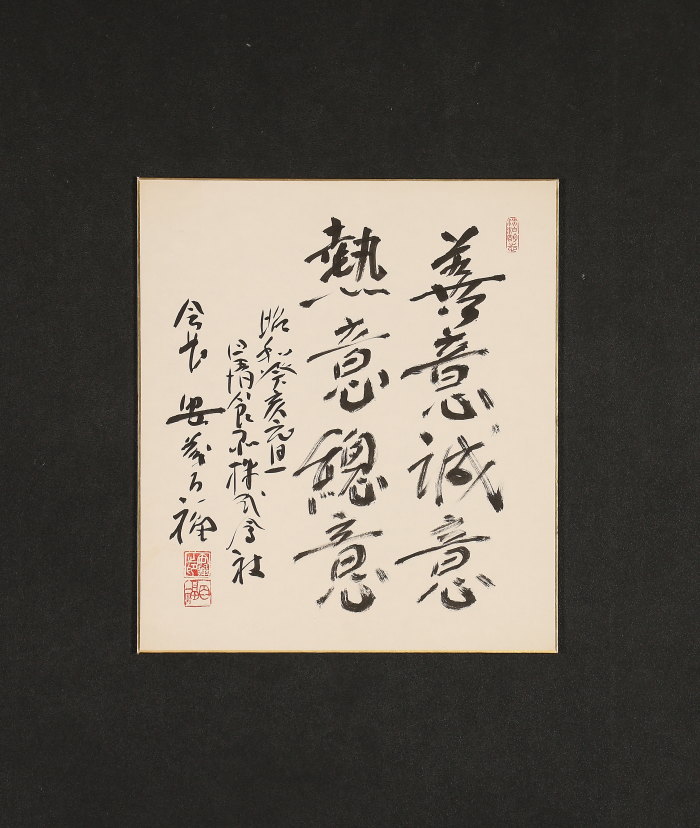 善意誠意
熱意聰意
昭和癸亥元旦
日清食品株式会社
会長 安藤百福